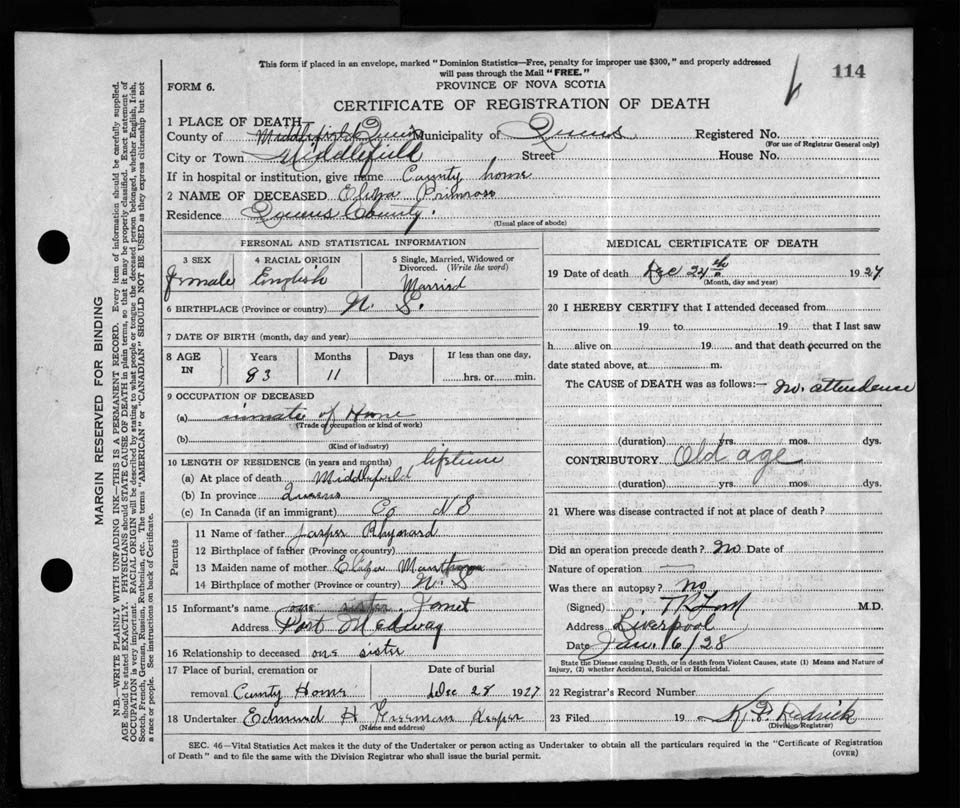 This form if placed in an envelope, marked "Dominion Statistics—Free, penalty for improper use $300," and properly addressed
will pass through the Mail "FREE."
114
FORM 6.
PROVINCE OF NOVA SCOTIA
CERTIFICATE OF REGISTRATION OF DEATH
1 PLACE OF DEATH
County of Middlefield Queens Municipality of Queens Registered No.
(For use of Registrar General only)
City or Town Middlefield Street House No.
If in hospital or institution, give name County home
2 NAME OF DECEASED Eliza Primross
Residence Queens County.
(Usual place of abode)
PERSONAL AND STATISTICAL INFORMATION
3 SEX 4 RACIAL ORIGIN 5 Single, Married, Widowed or
Divorced. (Write the word)
Female English Married
6 BIRTHPLACE (Province or country) N. S.
7 DATE OF BIRTH (month, day and year)
8 AGE IN Years Months Days If less than one day,
83 11 hrs. or min.
9 OCCUPATION OF DECEASED
(a) inmate of Home
(Trade or occupation or kind of work)
(b)
(Kind of industry)
10 LENGTH OF RESIDENCE (in years and months) lifetime
(a) At place of death Middlefield
(b) In province Queens
(c) In Canada (if an immigrant) Co N S
Parents
11 Name of father Jasper Rhynard
12 Birthplace of father (Province or country)
13 Maiden name of mother Eliza
14 Birthplace of mother (Province or country) N. S
15 Informant's name one sister. Janet
Address Port Medway
16 Relationship to deceased one sister
17 Place of burial, cremation or Date of burial
removal County Home Dec 28 1927
18 Undertaker Edmund H Freeman
(Name and address)
MEDICAL CERTIFICATE OF DEATH
19 Date of death Dec 24th 1927
(Month, day and year)
20 I HEREBY CERTIFY that I attended deceased from
19 to 19 that I last saw
h alive on 19 and that death occurred on the
date stated above, at m.
The CAUSE of DEATH was as follows:— no. attendence
(duration) yrs. mos. dys.
CONTRIBUTORY Old age
(duration) yrs. mos. dys.
21 Where was disease contracted if not at place of death?
Did an operation precede death? no Date of
Nature of operation —
Was there an autopsy? no
(Signed) M.D.
Address Liverpool
Date Jan. 16/28
State the Disease causing Death, or in death from Violent Causes, state (1) Means and Nature of
Injury, (2) whether Accidental, Suicidal or Homicidal.
22 Registrar's Record Number
23 Filed 19
(Division Registrar)
SEC. 46—Vital Statistics Act makes it the duty of the Undertaker or person acting as Undertaker to obtain all the particulars required in the "Certificate of Registration
of Death" and to file the same with the Division Registrar who shall issue the burial permit.
(OVER)
MARGIN RESERVED FOR BINDING
N.B.—WRITE PLAINLY WITH UNFADING INK—THIS IS A PERMANENT RECORD. Every item of information should be carefully supplied.
AGE should be stated EXACTLY. PHYSICIANS should STATE CAUSE OF DEATH in plain terms, so that it may be properly classified. Exact statement of
OCCUPATION is very important. RACIAL ORIGIN will be described by stating to what people or tongue the deceased person belonged, whether English, Irish,
Scotch, French, German, Russian, Ruthenian, etc. The terms "AMERICAN" or "CANADIAN" SHOULD NOT BE USED as they express citizenship but not
a race or people. See instructions on back of Certificate.